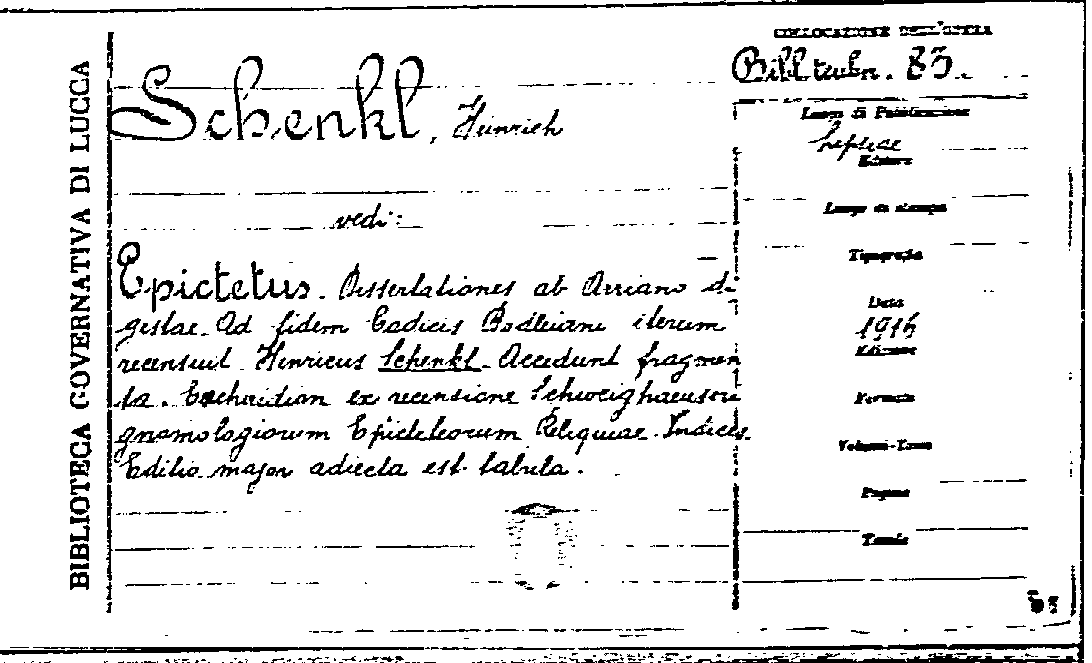 BIBLIOTECA GOVERNATIVA DI LUCCA
COLLOCAZIONE DELL'OPERA
Bibl. tubn. 83.
Schenkl, Heinrich
Luogo di Pubblicazione
Lipsiae
Editore
vedi:
Luogo di stampa
Tipografia
Epictetus. Dissertationes ab Arriano di-
gestae. Ad fidem Codicis Bodleiani iterum
recensuit Henricus Schenkl. Accedunt fragmen
ta. Encheiridion ex recensione Schweighaeuseri
gnomologiorum Epicteteorum Reliquiae. Indices.
Editio major adiecta est tabula.
Data
1916
Edizione
Formato
Volumi-Tomo
Pagine
Tavole